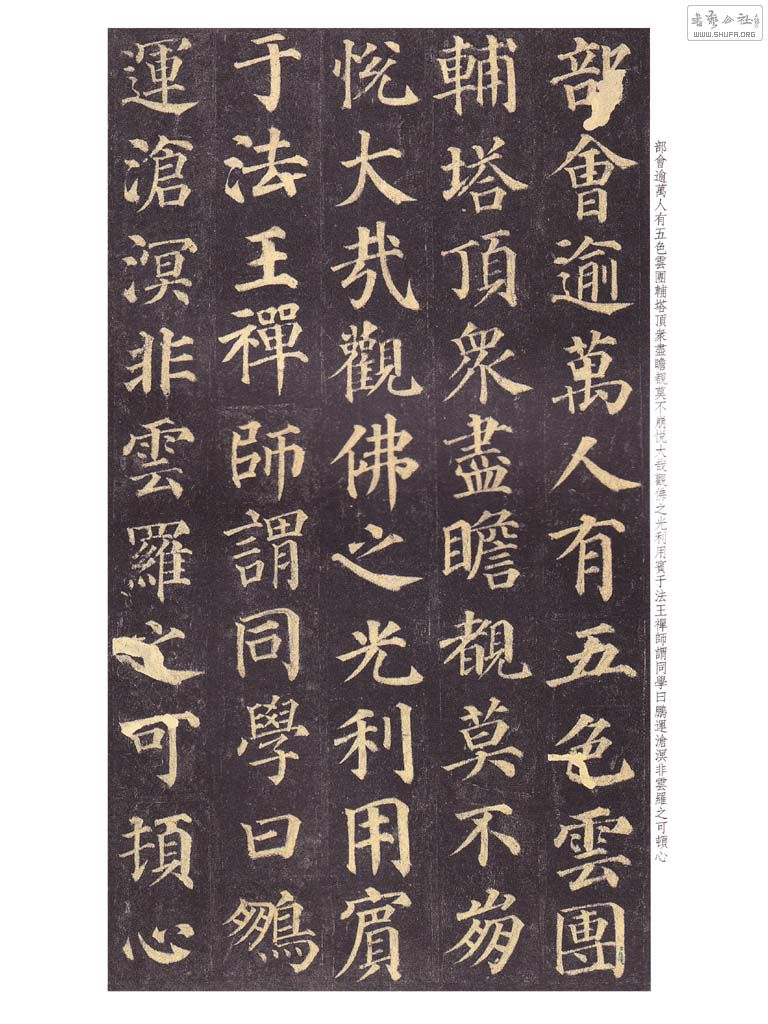 部會逾萬人有五色雲團
輔塔頂衆盡瞻覩莫不崩
悅大㦲觀佛之光利用賓
于法王禪師謂同學曰鵬
運滄溟非雲羅之可頓心
部會逾萬人有五色雲團輔塔頂衆盡瞻覩莫不崩悅大哉觀佛之光利用賓于法王禪師謂同學曰鵬運滄溟非雲羅之可頓心
书艺公社
WWW.SHUFA.ORG